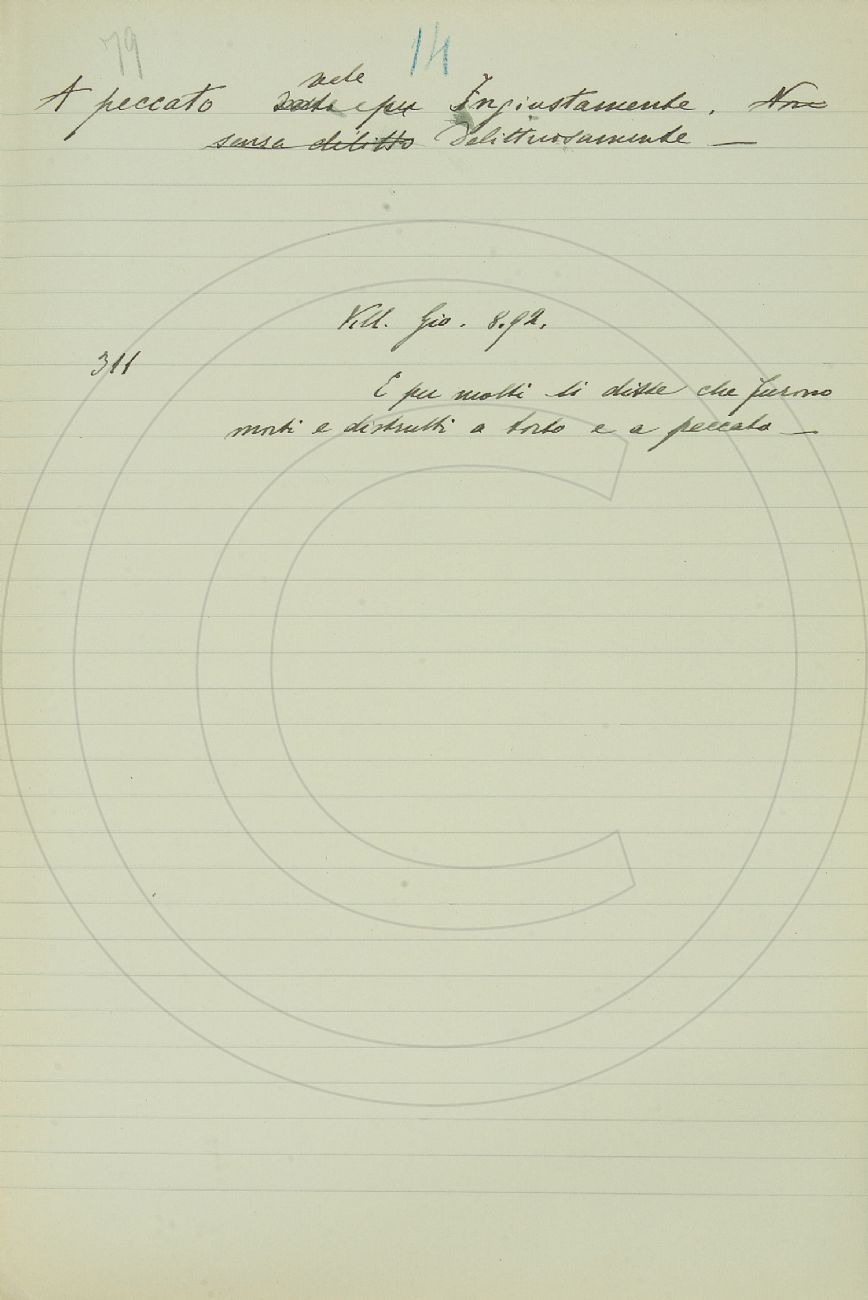 79 14
vale
A peccato ~~vale~~ e per Ingiustamente. ~~Non~~
~~senza delitto~~ Delittuosamente —
Vill. Gio. 8.92.
311
E per molti si disse che furono
morti e distrutti a torto e a peccato —